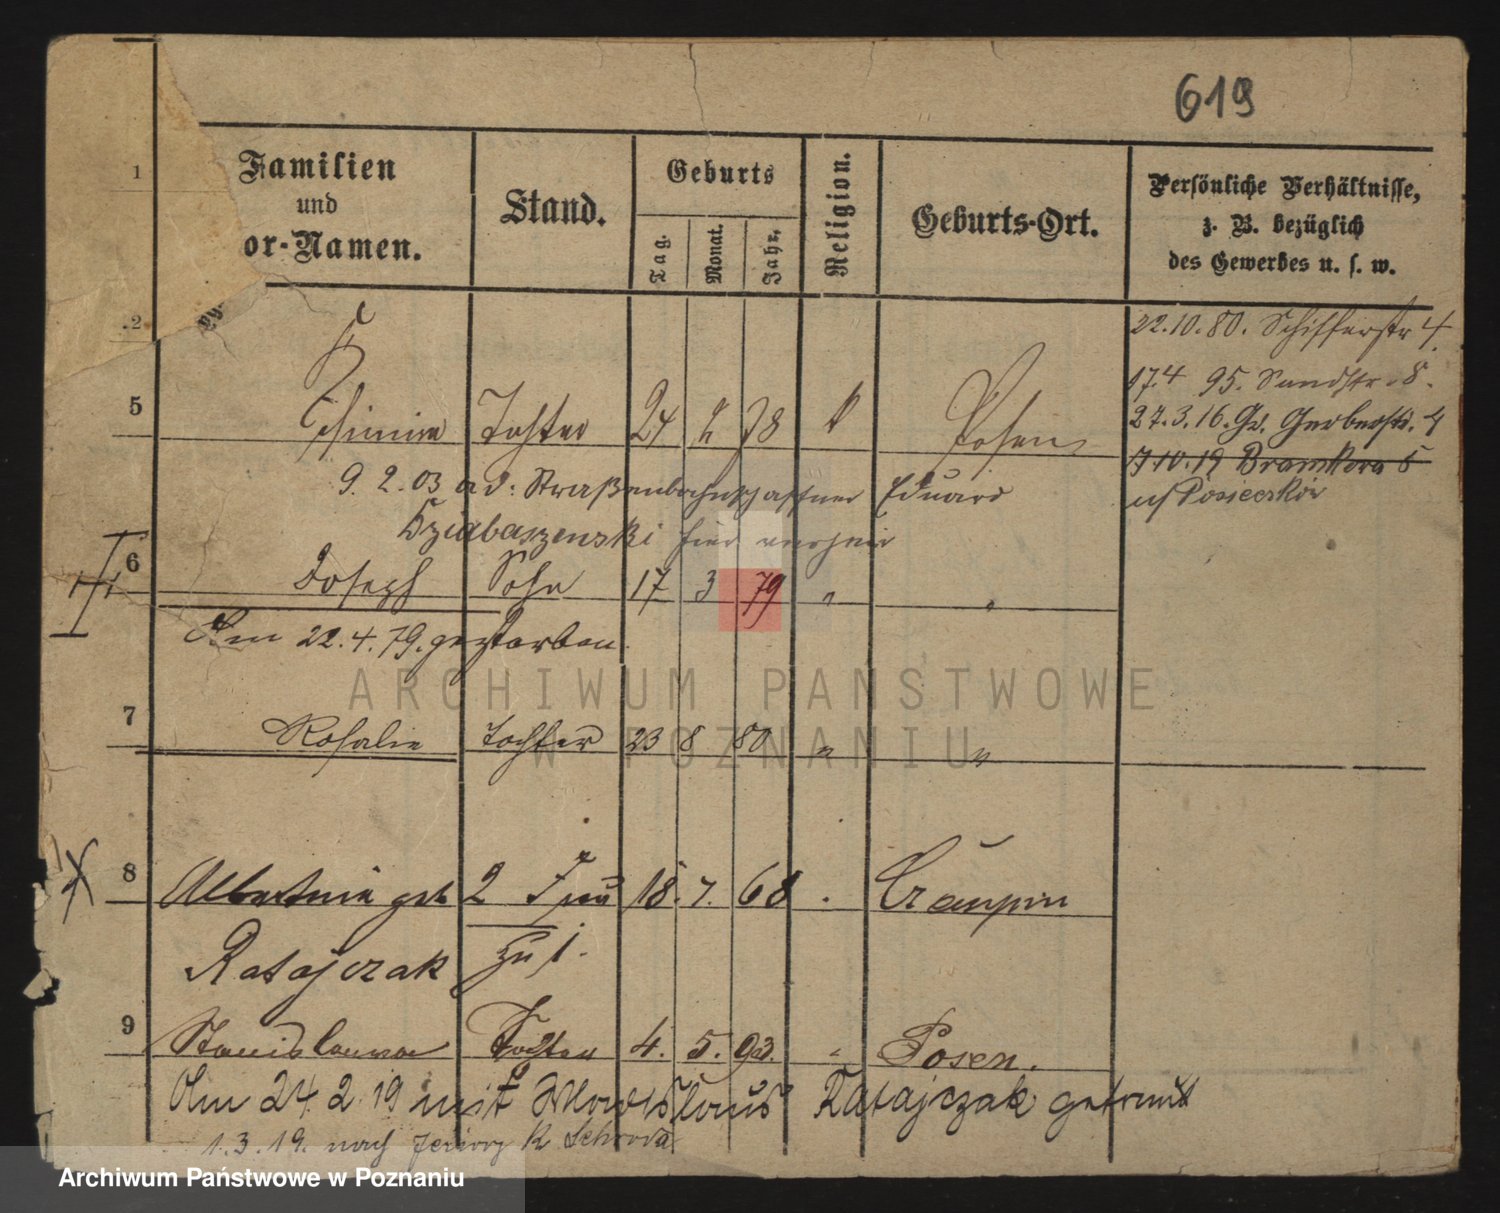 619
Familien
und
or-Namen.
Stand.
Geburts
Tag.
Monat.
Jahr.
Religion.
Geburts-Ort.
Persönliche Verhältnisse,
z. B. bezüglich
des Gewerbes u. s. w.
1
2
22.10.80. Schifferstr 4.
17.4 95. Sandstr. 8.
27.3.16. Gr. Gerberstr. 4
7.10.19
5 Tochter 24 2 78 k Posen
9. 2. 03 ad: Straßenbahnschaffner Eduard
Dziabaszewski hier
6 Joseph Sohn 17 3 79 " "
Am 22.4.79. gestorben.
7 Rosalie Tochter 23 8 80 " "
8 Albertine geb 2 Frau 18. 7. 68 .
Ratajczak zu 1.
9 Stanislawa Tochter 4. 5. 93. " Posen.
Am 24. 2. 19 mit Wladislaus Ratajczak getraut
1.3.19. nach Jeziory K. Schroda
ARCHIWUM PAŃSTWOWE
W POZNANIU
Archiwum Państwowe w Poznaniu